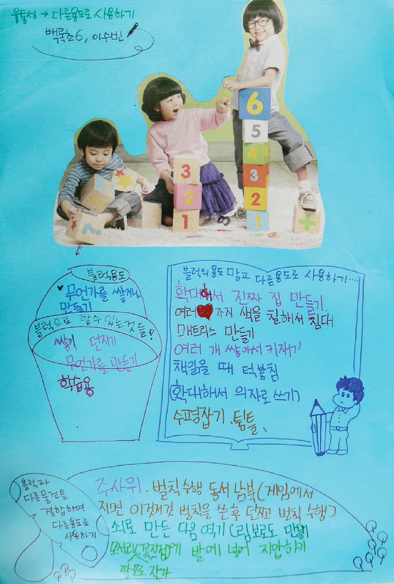 융통성 → 다른용도로 사용하기
백록초6, 이수빈
6
5
4
3
2
1
3
2
1
블럭용도
무언가를 쌓거나
만들기
블럭으로 할수 있는것들?
쌓기 던지기
무언가를 만들기
학습용
블럭의 용도 말고 다른용도로 사용하기....
확대해서 진짜 집 만들기,
여러 가게 색을 칠해서 침대
매트리스 만들기
여러 개 쌓아서 키재기
책읽을 때 턱받침
확대해서 의자로 쓰기
수평잡기. 틈틀.
블럭과
다른물건을
결합하여
다른용도로
사용하기
주사위. 벌칙수행 동서남북(게임에서
지면 이것저것 벌칙을 쓴후 던져고 벌칙 수행)
쇠로 만든 다음 여기 그림보로도 만들기
발에 넣어 지압하기